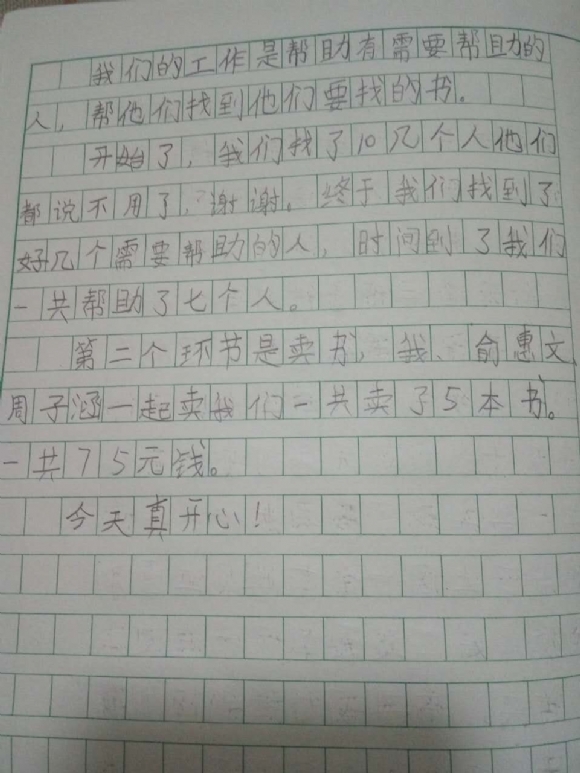 我们的工作是帮助有需要帮助的
人，帮他们找到他们要找的书。
开始了，我们找了10几个人他们
都说不用了，谢谢。终于我们找到了
好几个需要帮助的人，时间到了我们
一共帮助了七个人。
第二个环节是卖书，我、俞惠文、
周子涵一起卖我们一共卖了5本书。
一共75元钱。
今天真开心！